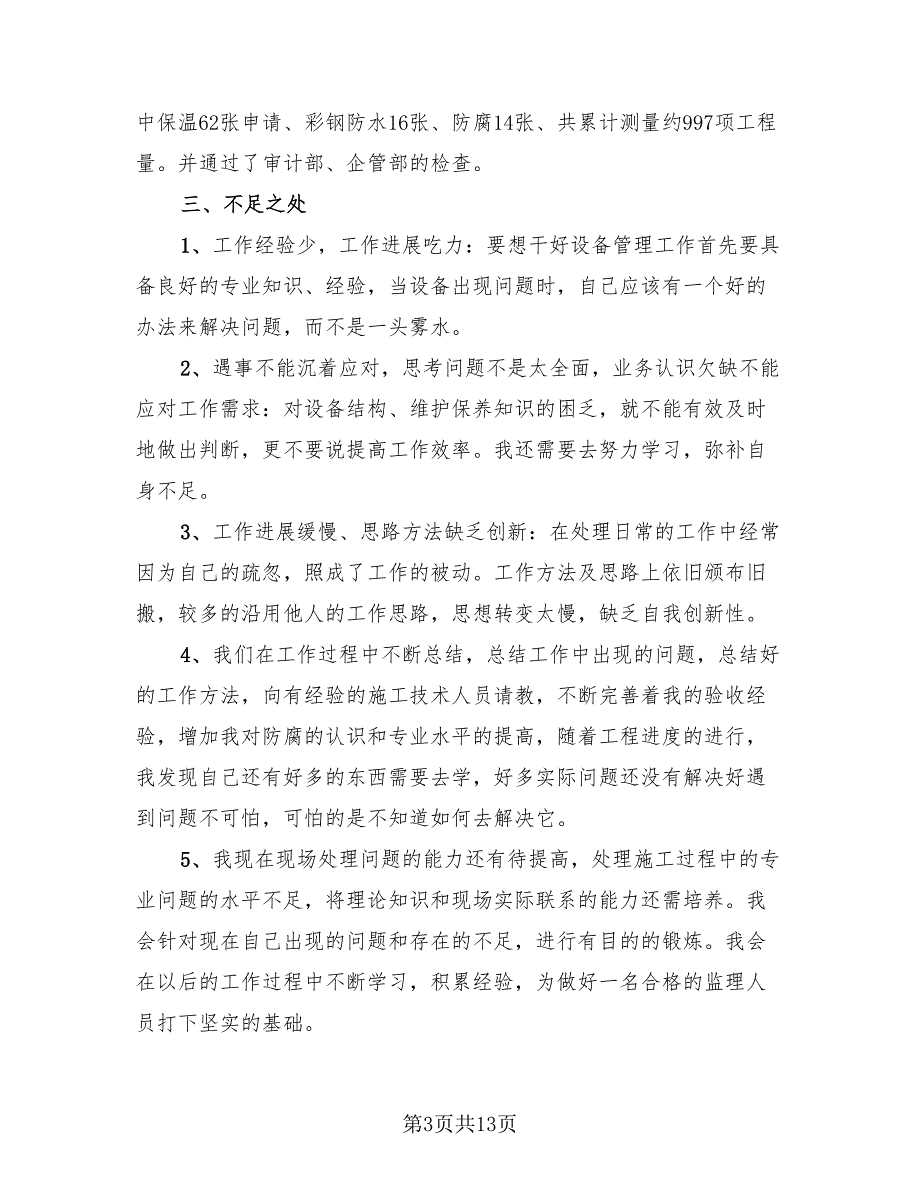 中保温62张申请、彩钢防水16张、防腐14张、共累计测量约997项工程
量。并通过了审计部、企管部的检查。
三、不足之处
1、工作经验少，工作进展吃力：要想干好设备管理工作首先要具
备良好的专业知识、经验，当设备出现问题时，自己应该有一个好的
办法来解决问题，而不是一头雾水。
2、遇事不能沉着应对，思考问题不是太全面，业务认识欠缺不能
应对工作需求：对设备结构、维护保养知识的困乏，就不能有效及时
地做出判断，更不要说提高工作效率。我还需要去努力学习，弥补自
身不足。
3、工作进展缓慢、思路方法缺乏创新：在处理日常的工作中经常
因为自己的疏忽，照成了工作的被动。工作方法及思路上依旧颁布旧
搬，较多的沿用他人的工作思路，思想转变太慢，缺乏自我创新性。
4、我们在工作过程中不断总结，总结工作中出现的问题，总结好
的工作方法，向有经验的施工技术人员请教，不断完善着我的验收经
验，增加我对防腐的认识和专业水平的提高，随着工程进度的进行，
我发现自己还有好多的东西需要去学，好多实际问题还没有解决好遇
到问题不可怕，可怕的是不知道如何去解决它。
5、我现在现场处理问题的能力还有待提高，处理施工过程中的专
业问题的水平不足，将理论知识和现场实际联系的能力还需培养。我
会针对现在自己出现的问题和存在的不足，进行有目的的锻炼。我会
在以后的工作过程中不断学习，积累经验，为做好一名合格的监理人
员打下坚实的基础。
第3页共13页